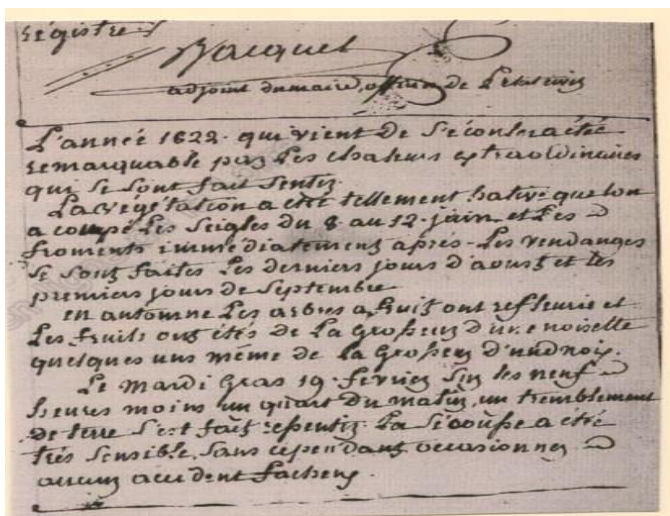 régistre
Jacquet
adjoint du maire, officier de l'etat civil
L'année 1822 qui vient de s'écouler a été
remarquable par les chaleurs extraordinaires
qui se sont fait sentir.
La végétation a été tellement hative que l'on
a coupé les seigles du 8 au 12 juin et les
froments immédiatement après. Les vendanges
se sont faites les derniers jours d'aoust et les
premiers jours de septembre
en antomne les arbres a fruit ont reffleurie et
les fruits ont étés de la grosseur d'une noiselle
quelques uns même de la grosseur d'und noix.
Le mardi gras 19 février sur les neuf
heures moins un quart du matin, un tremblement
de terre s'est fait ressentir la sécousse a été
très sensible, sans cependant occasionner
aucun accident facheux.